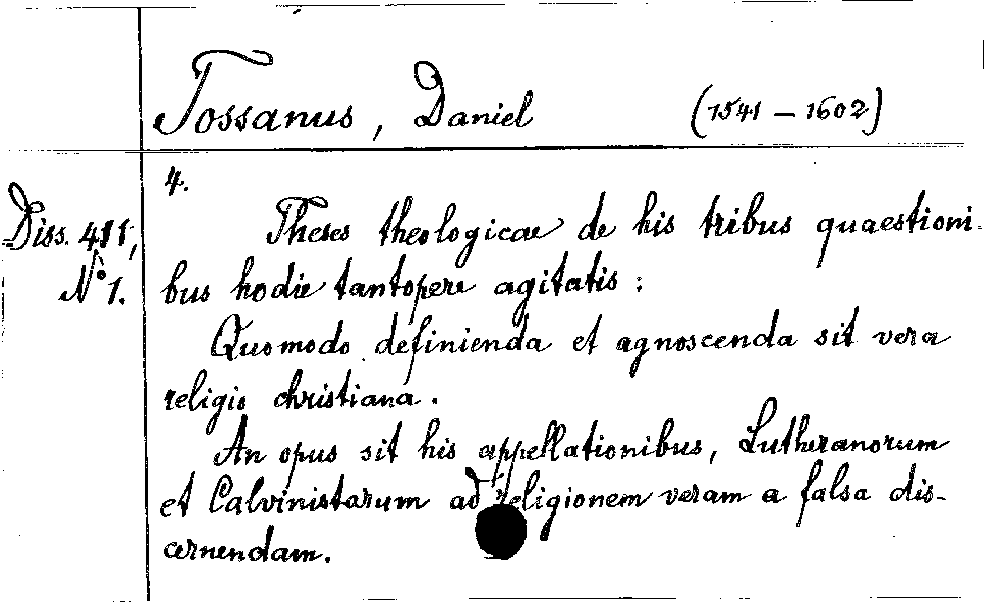 Tossanus, Daniel (1541 – 1602)
4.
Diss. 411,
No 1.
Theses theologicae de his tribus quaestioni-
bus hodie tantopere agitatis :
Quomodo definienda et agnoscenda sit vera
religio christiana.
An opus sit his appellationibus, Lutheranorum
et Calvinistarum ad religionem veram a falsa dis-
cernendam.